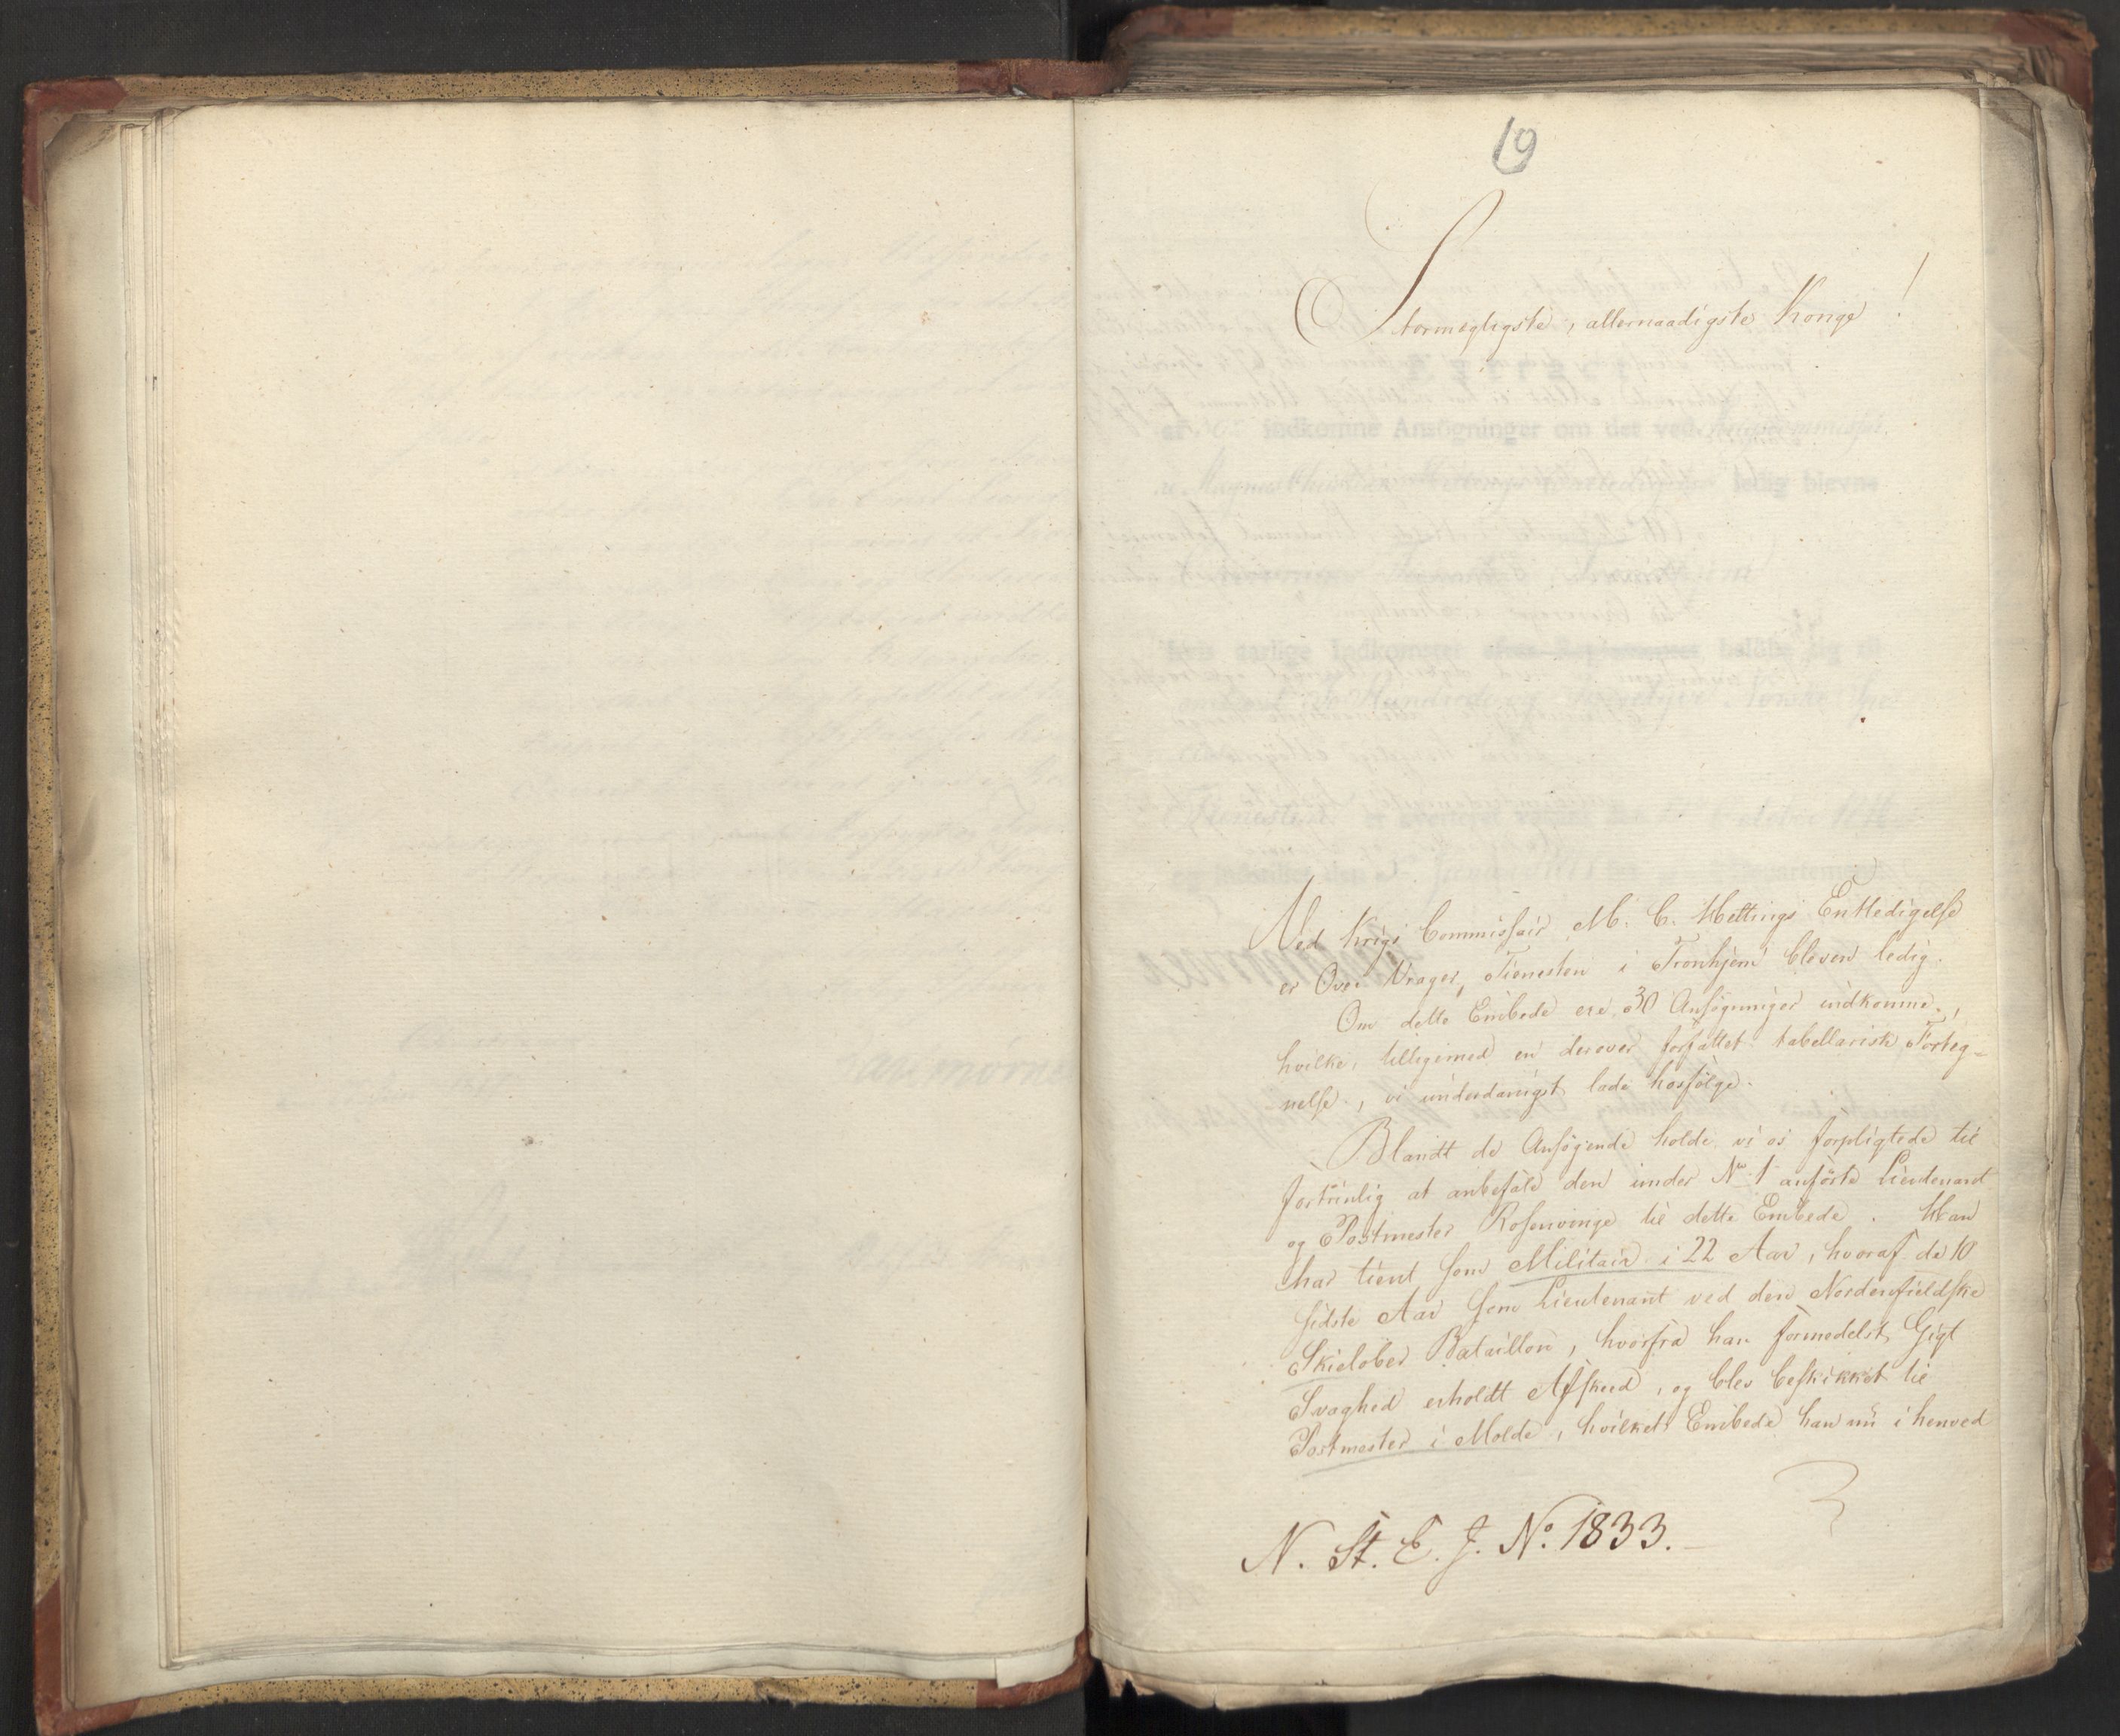 19
Stormægtigste, allernaadigste Konge!
Ved Krigs Commissair M. C. Hettings Entledigelse
er Over Vrager Tienesten i Tronhjem bleven ledig.
Om dette Embede ere 30 Ansögninger indkomne,
hvilke, tilligemed en derover forfattet tabellarisk Forteg-
nelse, vi underdanigst lade hosfölge.
Blandt de Ansögende holde vi os forpligtede til
fortrinlig at anbefale den under No 1 anförte Lieutenant
og Postmester Rosenvinge til dette Embede. Han
har tient som Militair i 22 Aar, hvoraf de 10
sidste Aar som Lieutenant ved den Nordenfieldske
Skielöber Bataillon, hvorfra han formedelst Gigt
Svaghed erholdt Afskeed, og blev beskikket til
Postmester i Molde, hvilket Embede han nu i henved
N. St. E. J. No. 1833.